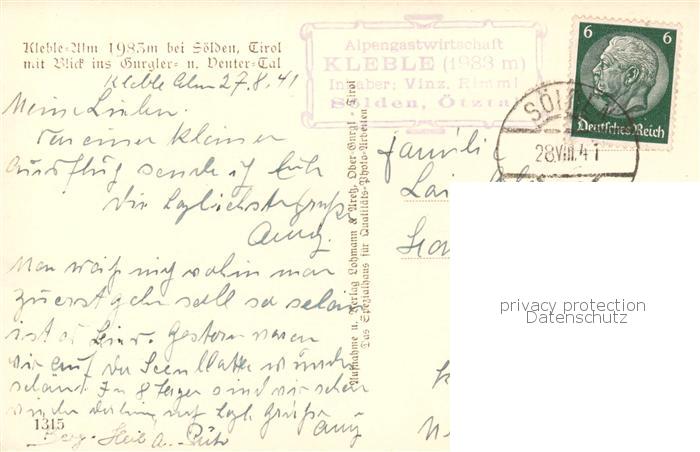 Kleble-Alm 1983m bei Sölden, Tirol
mit Blick ins Gurgler- u. Venter-Tal
Kleble Alm 27.8.41
Meine Lieben.
Von einer kleinen
Ausflug sende ich Euch
die herzlichsten Grüße
Man weiß nicht wohin man
zuerst gehn soll so schön
ist es hier. Gestern waren
wir auf der
schön. In 8 Tagen sind wir schon
wieder daheim, auf
1315
Berg-Heil
Alpengastwirtschaft
KLEBLE (1983 m)
Inhaber: Vinz. Riml
Sölden, Ötztal
Aufnahme u. Verlag Lohmann & Aretz, Ober-Gurgl - Tirol
Das Spezialhaus für Qualitäts-Photo-Arbeiten
6 6
Deutsches Reich
SÖLDEN
28.VIII.41
Familie
privacy protection
Datenschutz